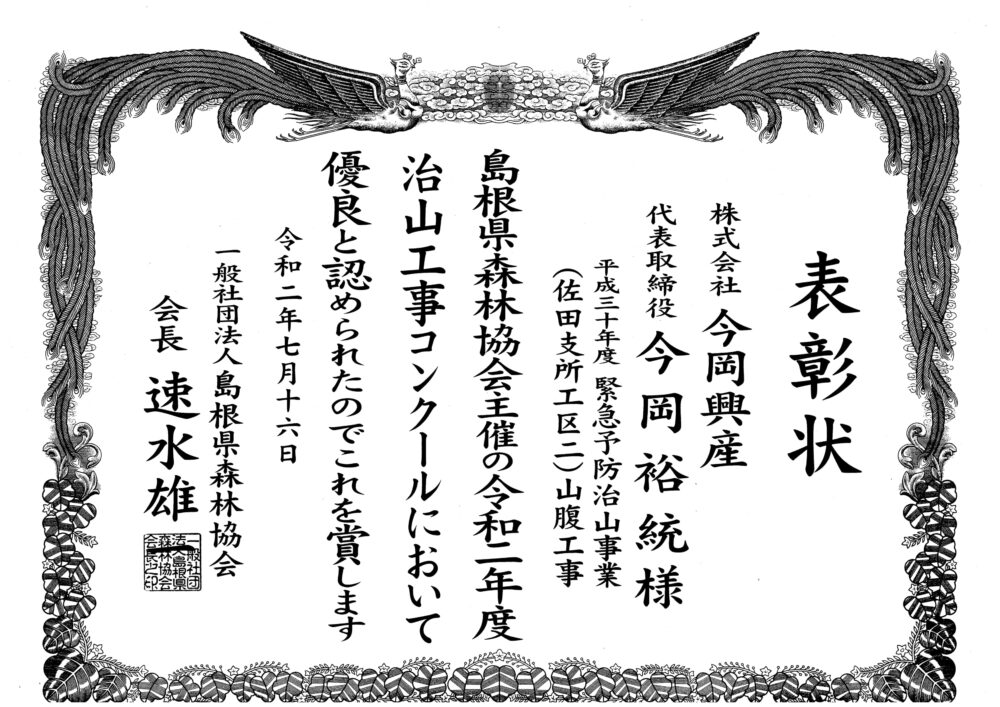 表彰状
株式会社 今岡興産
代表取締役 今岡裕統様
平成三十年度 緊急予防治山事業
(佐田支所工区二)山腹工事
島根県森林協会主催の令和二年度
治山工事コンクールにおいて
優良と認められたのでこれを賞します
令和二年七月十六日
一般社団法人 島根県森林協会
会長 速水雄
一般社団
法人島根県
森林協会
会長之印